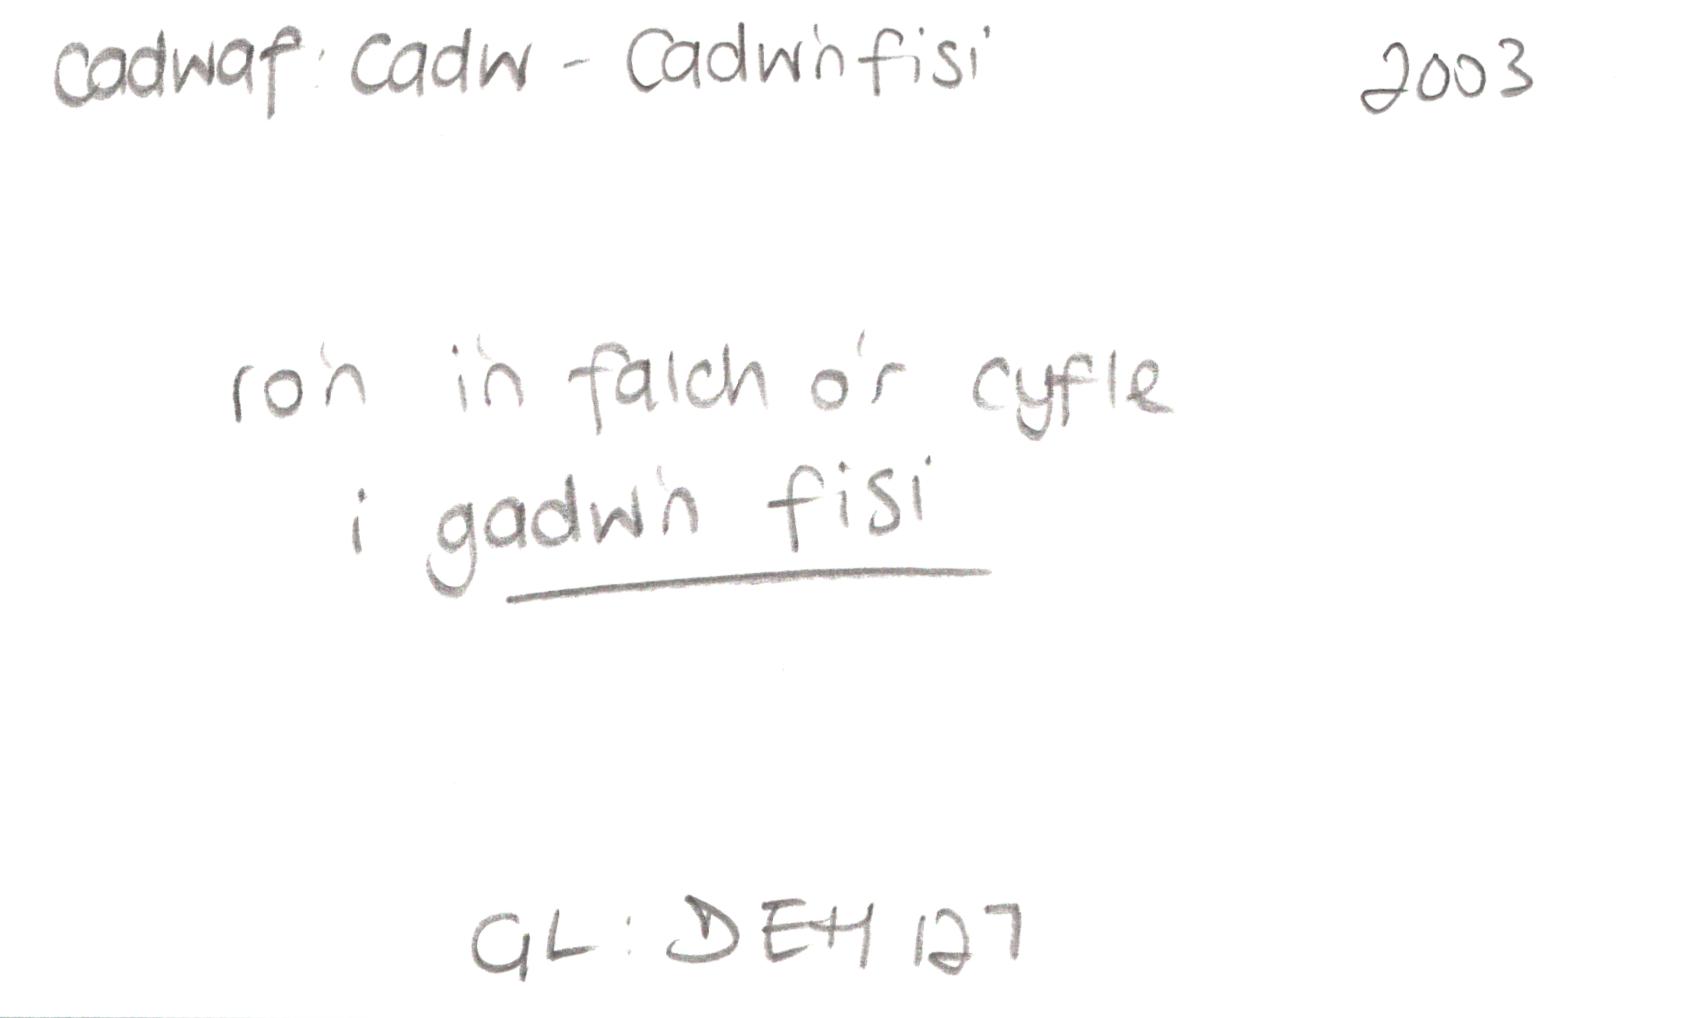 cadwaf: cadw - Cadw'n fisi 2003
ro'n i'n falch o'r cyfle
i gadw'n fisi
GL: DEH 127